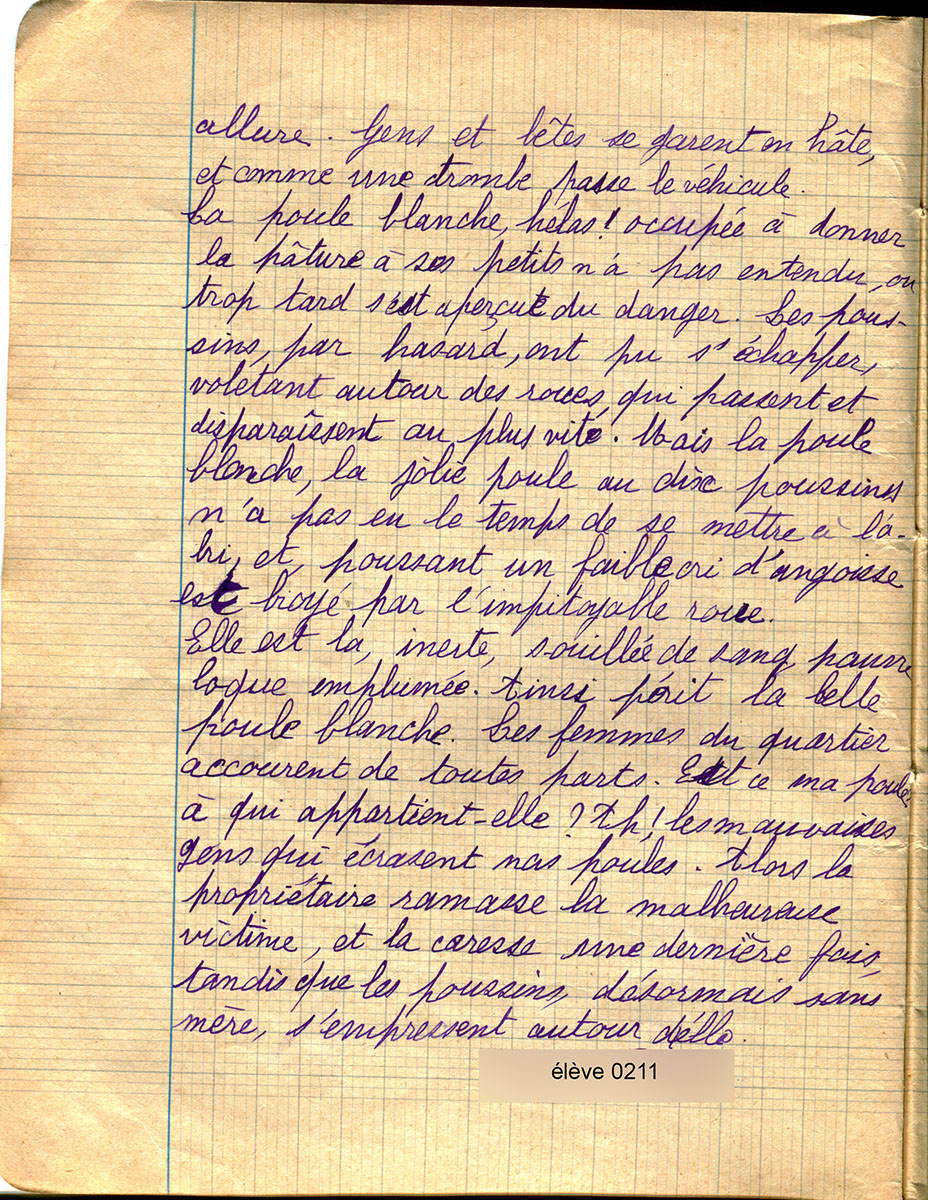 allure. Gens et bêtes se garent en hâte,
et comme une trombe passe le véhicule.
La poule blanche, hélas! occupée à donner
la pâture à ses petits n'a pas entendu, ou
trop tard s'est aperçue du danger. Les pous-
sins, par hasard, ont pu s'échapper,
voletant autour des roues, qui passent et
disparaîssent au plus vite. Mais la poule
blanche, la jolie poule au dix poussins
n'a pas eu le temps de se mettre à l'a-
bri, et, poussant un faible cri d'angoisse
est broyé par l'impitoyable roue.
Elle est la, inerte, souillée de sang, pauvre
loque emplumée. Ainsi périt la belle
poule blanche. Les femmes du quartier
accourent de toutes parts. Est ce ma poule?
à qui appartient-elle? Ah! les mauvaises
gens qui écrasent nos poules. Alors la
propriétaire ramasse la malheureuse
victime, et la caresse une dernière fois,
tandis que les poussins, désormais sans
mère, s'empressent autour d'elle.
élève 0211